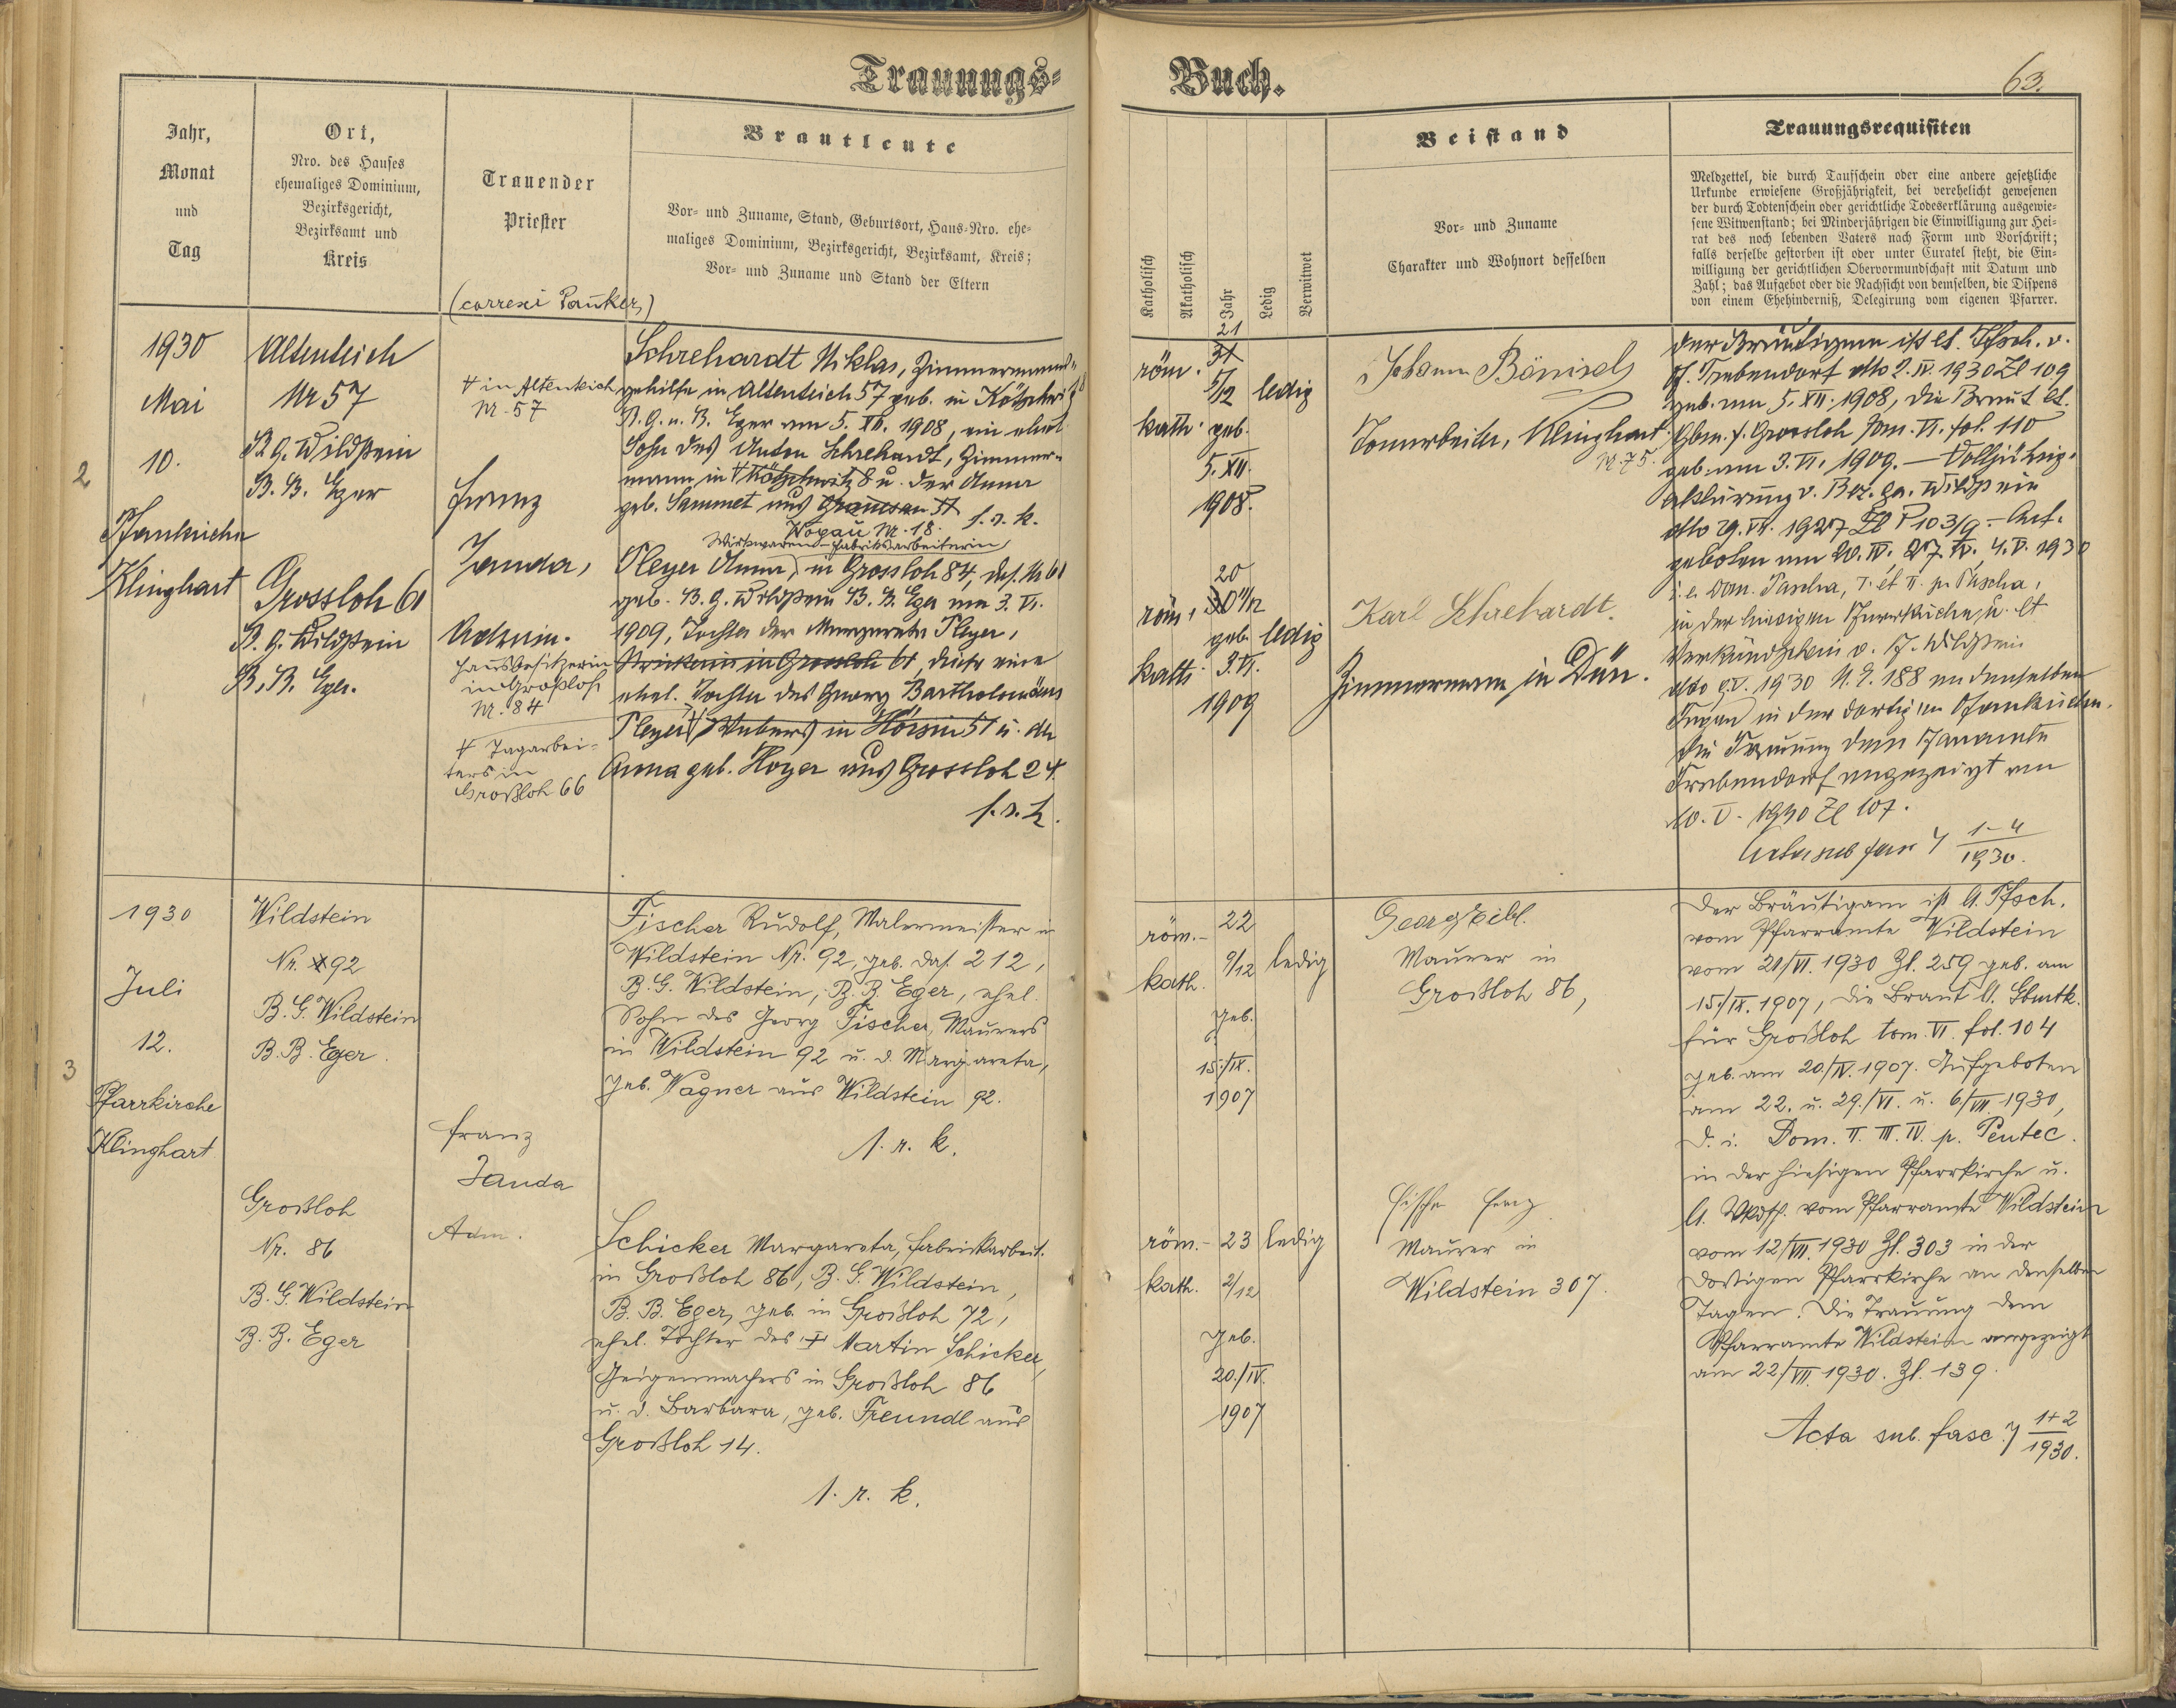 Trauungs-
Buch.
63.
Jahr,
Monat
und
Tag
Ort,
Nro. des Hauses
ehemaliges Dominium,
Bezirksgericht,
Bezirksamt und
Kreis
Trauender
Priester
(correxi Pauker)
Brautleute
Vor- und Zuname, Stand, Geburtsort, Haus-Nro. ehe-
maliges Dominium, Bezirksgericht, Bezirksamt, Kreis;
Vor- und Zuname und Stand der Eltern
Katholisch
Akatholisch
Jahr
Ledig
Verwitwet
Beistand
Vor- und Zuname
Charakter und Wohnort desselben
Trauungsrequisiten
Meldzettel, die durch Taufschein oder eine andere gesetzliche
Urkunde erwiesene Großjährigkeit, bei verehelicht gewesenen
der durch Todtenschein oder gerichtliche Todeserklärung ausgewie-
sene Witwenstand; bei Minderjährigen die Einwilligung zur Hei-
rat des noch lebenden Vaters nach Form und Vorschrift;
falls derselbe gestorben ist oder unter Curatel steht, die Ein-
willigung der gerichtlichen Obervormundschaft mit Datum und
Zahl; das Aufgebot oder die Nachsicht von demselben, die Dispens
von einem Ehehinderniß, Delegirung vom eigenen Pfarrer.
2
1930
Mai
10.
Pfarrkirche
Klinghart
Altenteich
Nr 57
B.G. Wildstein
B.B. Eger
Grossloh 61
B.G. Wildstein
B.B. Eger.
in Altenteich
Nr. 57
Franz
Janda,
Admin.
Hausbesitzerin
in Großloh
Nr. 84
Tagarbei-
ters in
Großloh 66
Schrehardt Niklas, Zimmermanns-
gehilfe in Altenteich 57 geb. in
B.G. u. B. Eger am 5. XII. 1908, ein ehel.
Sohn des Anton Schrehardt, Zimmer-
mann in 8 u. der Anna
geb. Sammet aus
Wogau Nr. 18. l. r. k.
Wirkwaren-Fabriksarbeiterin
Pleyer Anna, in Grossloh 84, das. Nr 61
geb. B.G. Wildstein B.B. Eger am 3. VI.
1909, Tochter der Margareta Pleyer,
in Grossloh 61, diese eine
ehel. Tochter des Georg Bartholomäus
Pleyer, Webers in 51 u. der
Anna geb. Hoyer aus Grossloh 24.
l. r. k.
röm.
kath.
21
31
5/12
geb.
5. XII.
1908.
ledig
röm.
kath.
20
30 11/12
geb.
3. VI.
1909
ledig
Johann Bönisch
Tonarbeiter, Klinghart
Nr. 75.
Karl Schrehardt.
Zimmermann in Dürr.
Der Bräutigam ist lt. Pfsch. v.
Pf. Trebendorf dto 2. IV. 1930 Zl 109
geb. am 5. XII. 1908, die Braut lt.
Gbm. f. Grossloh tom. VI. fol. 110
geb. am 3. VI. 1909. — Volljährig-
erklärung v. Bez. Ge. Wildstein
dto 29. VII. 1927 Zl P 103/9 — Auf-
geboten am 20. IV. 27. IV. 4. V. 1930
i. e. Dom. Pascha, I. et II. p. Pascha,
in der hiesigen Pfarrkirche, u. lt
Verkündschein v. Pf. Wildstein
dto 9. V. 1930 N. E. 188 an denselben
Tagen in der dortigen Pfarrkirche.
Die Trauung dem Pfarramte
Trebendorf angezeigt am
10. V. 1930 Zl 107.
Acta sub fasc 7 1-4
1930.
3
1930
Juli
12.
Pfarrkirche
Klinghart
Wildstein
Nr. 92
B.G. Wildstein
B.B. Eger.
Großloh
Nr. 86
B.G. Wildstein
B.B. Eger
Franz
Janda
Adm.
Fischer Rudolf, Malermeister in
Wildstein Nr. 92, geb. das. 212,
B.G. Wildstein, B.B. Eger, ehel.
Sohn des Georg Fischer, Maurers
in Wildstein 92 u. d. Margareta,
geb. Wagner aus Wildstein 92.
l. r. k.
Schicker Margareta, Fabrikarbeit.
in Großloh 86, B.G. Wildstein,
B.B. Eger, geb. in Großloh 72,
ehel. Tochter des † Martin Schicker,
Geigenmachers in Großloh 86
u. d. Barbara, geb. Freundl aus
Großloh 14.
l. r. k.
röm.-
kath.
22
9/12
geb.
15./IX.
1907
ledig
röm.-
kath.
23
2/12
geb.
20./IV.
1907
ledig
Georg
Maurer in
Großloh 86,
Fischer
Maurer in
Wildstein 307.
Der Bräutigam ist lt. Pfsch.
vom Pfarramte Wildstein
vom 21/VI. 1930 Zl. 259 geb. am
15./IX. 1907, die Braut lt. Gbmtk.
für Großloh tom. VI. fol. 104
geb. am 20./IV. 1907. Aufgeboten
am 22. u. 29./VI. u. 6./VII. 1930,
d. i. Dom. II. III. IV. p. Pentec.
in der hiesigen Pfarrkirche u.
lt. Vkdsch. vom Pfarramte Wildstein
vom 12/VII. 1930 Zl. 303 in der
dortigen Pfarrkirche an denselben
Tagen. Die Trauung dem
Pfarramte Wildstein angezeigt
am 22/VII. 1930. Zl. 139.
Acta sub. fasc. 7 1+2
1930.